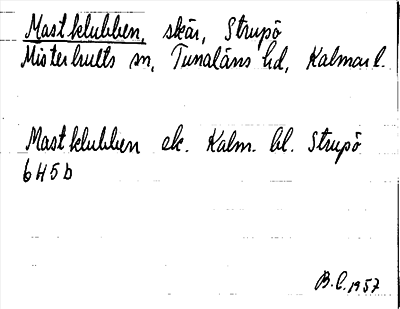 Mastklubben, skär, Strupö
Misterhults sn, Tunaläns hd, Kalmar l.
Mastklubben ek. Kalm. bl. Strupö
6 H 5 b
B.C. 1957